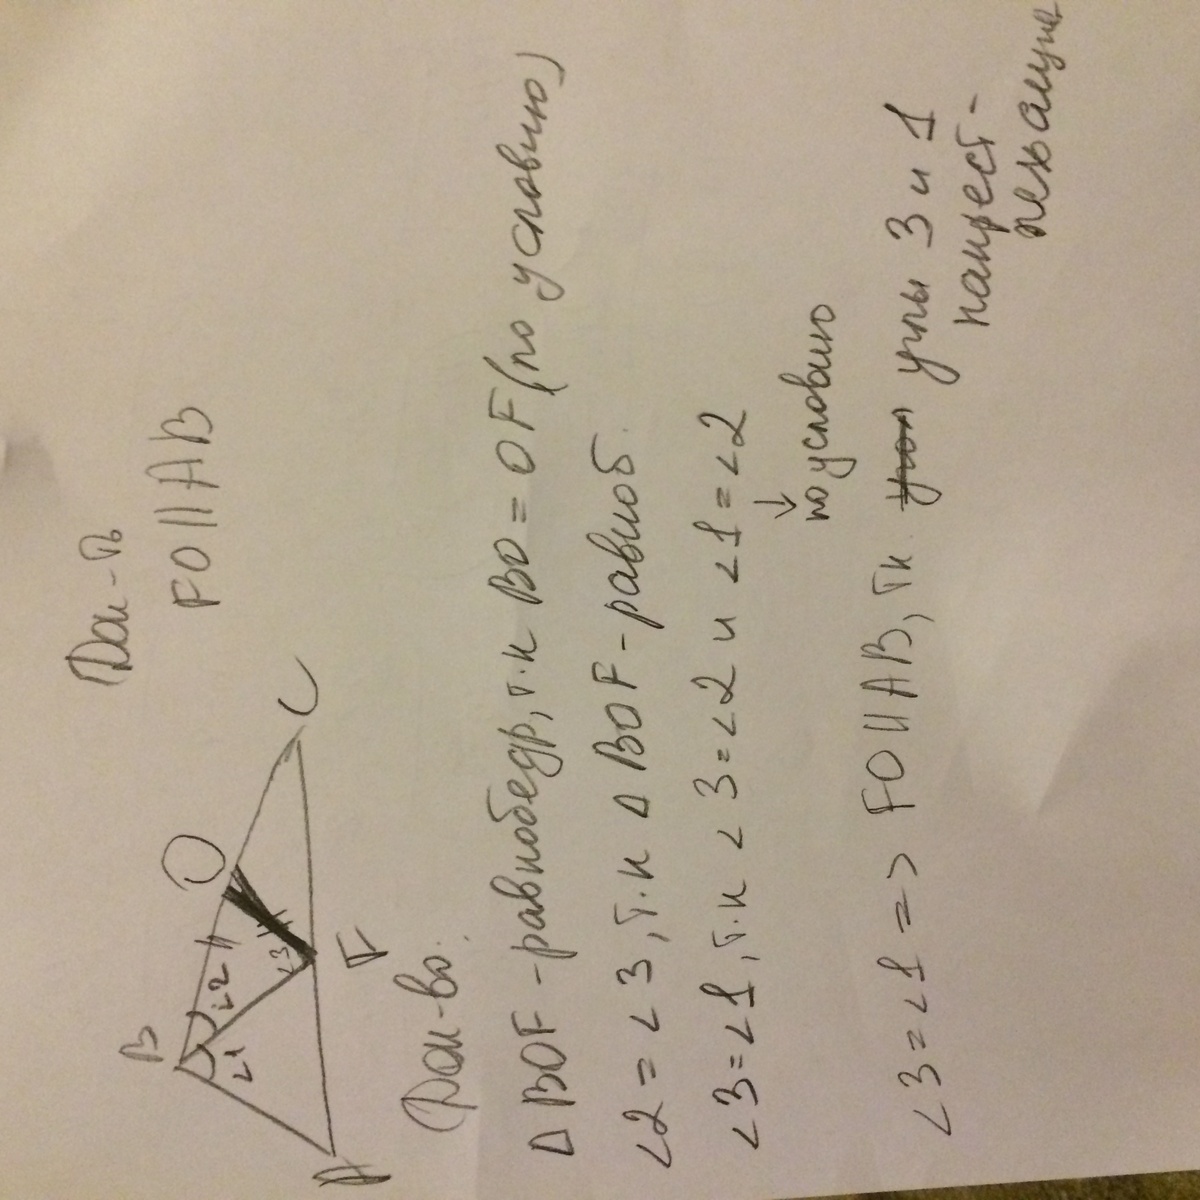 Док-ть
FO || AB
B
O
C
A
F
∠1
∠2
∠3
Док-во:
Δ BOF - равнобедр, т.к BO = OF (по условию)
∠2 = ∠3, т.к Δ BOF - равноб.
∠3 = ∠1, т.к ∠3 = ∠2 и ∠1 = ∠2
↓
по условию
∠3 = ∠1 => FO || AB, тк. углы 3 и 1
накрест-
лежащие